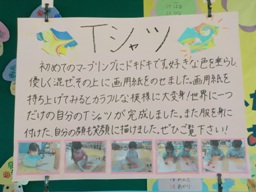 Tシャツ
初めてのマーブリングにドキドキです。好きな色を垂らし
優しく混ぜその上に画用紙をのせました。画用紙を
持ち上げてみるとカラフルな模様に大変身!世界に一つ
だけの自分のTシャツが完成しました。また服を身に
付けた、自分の顔も笑顔に描けました。ぜひご覧下さい!